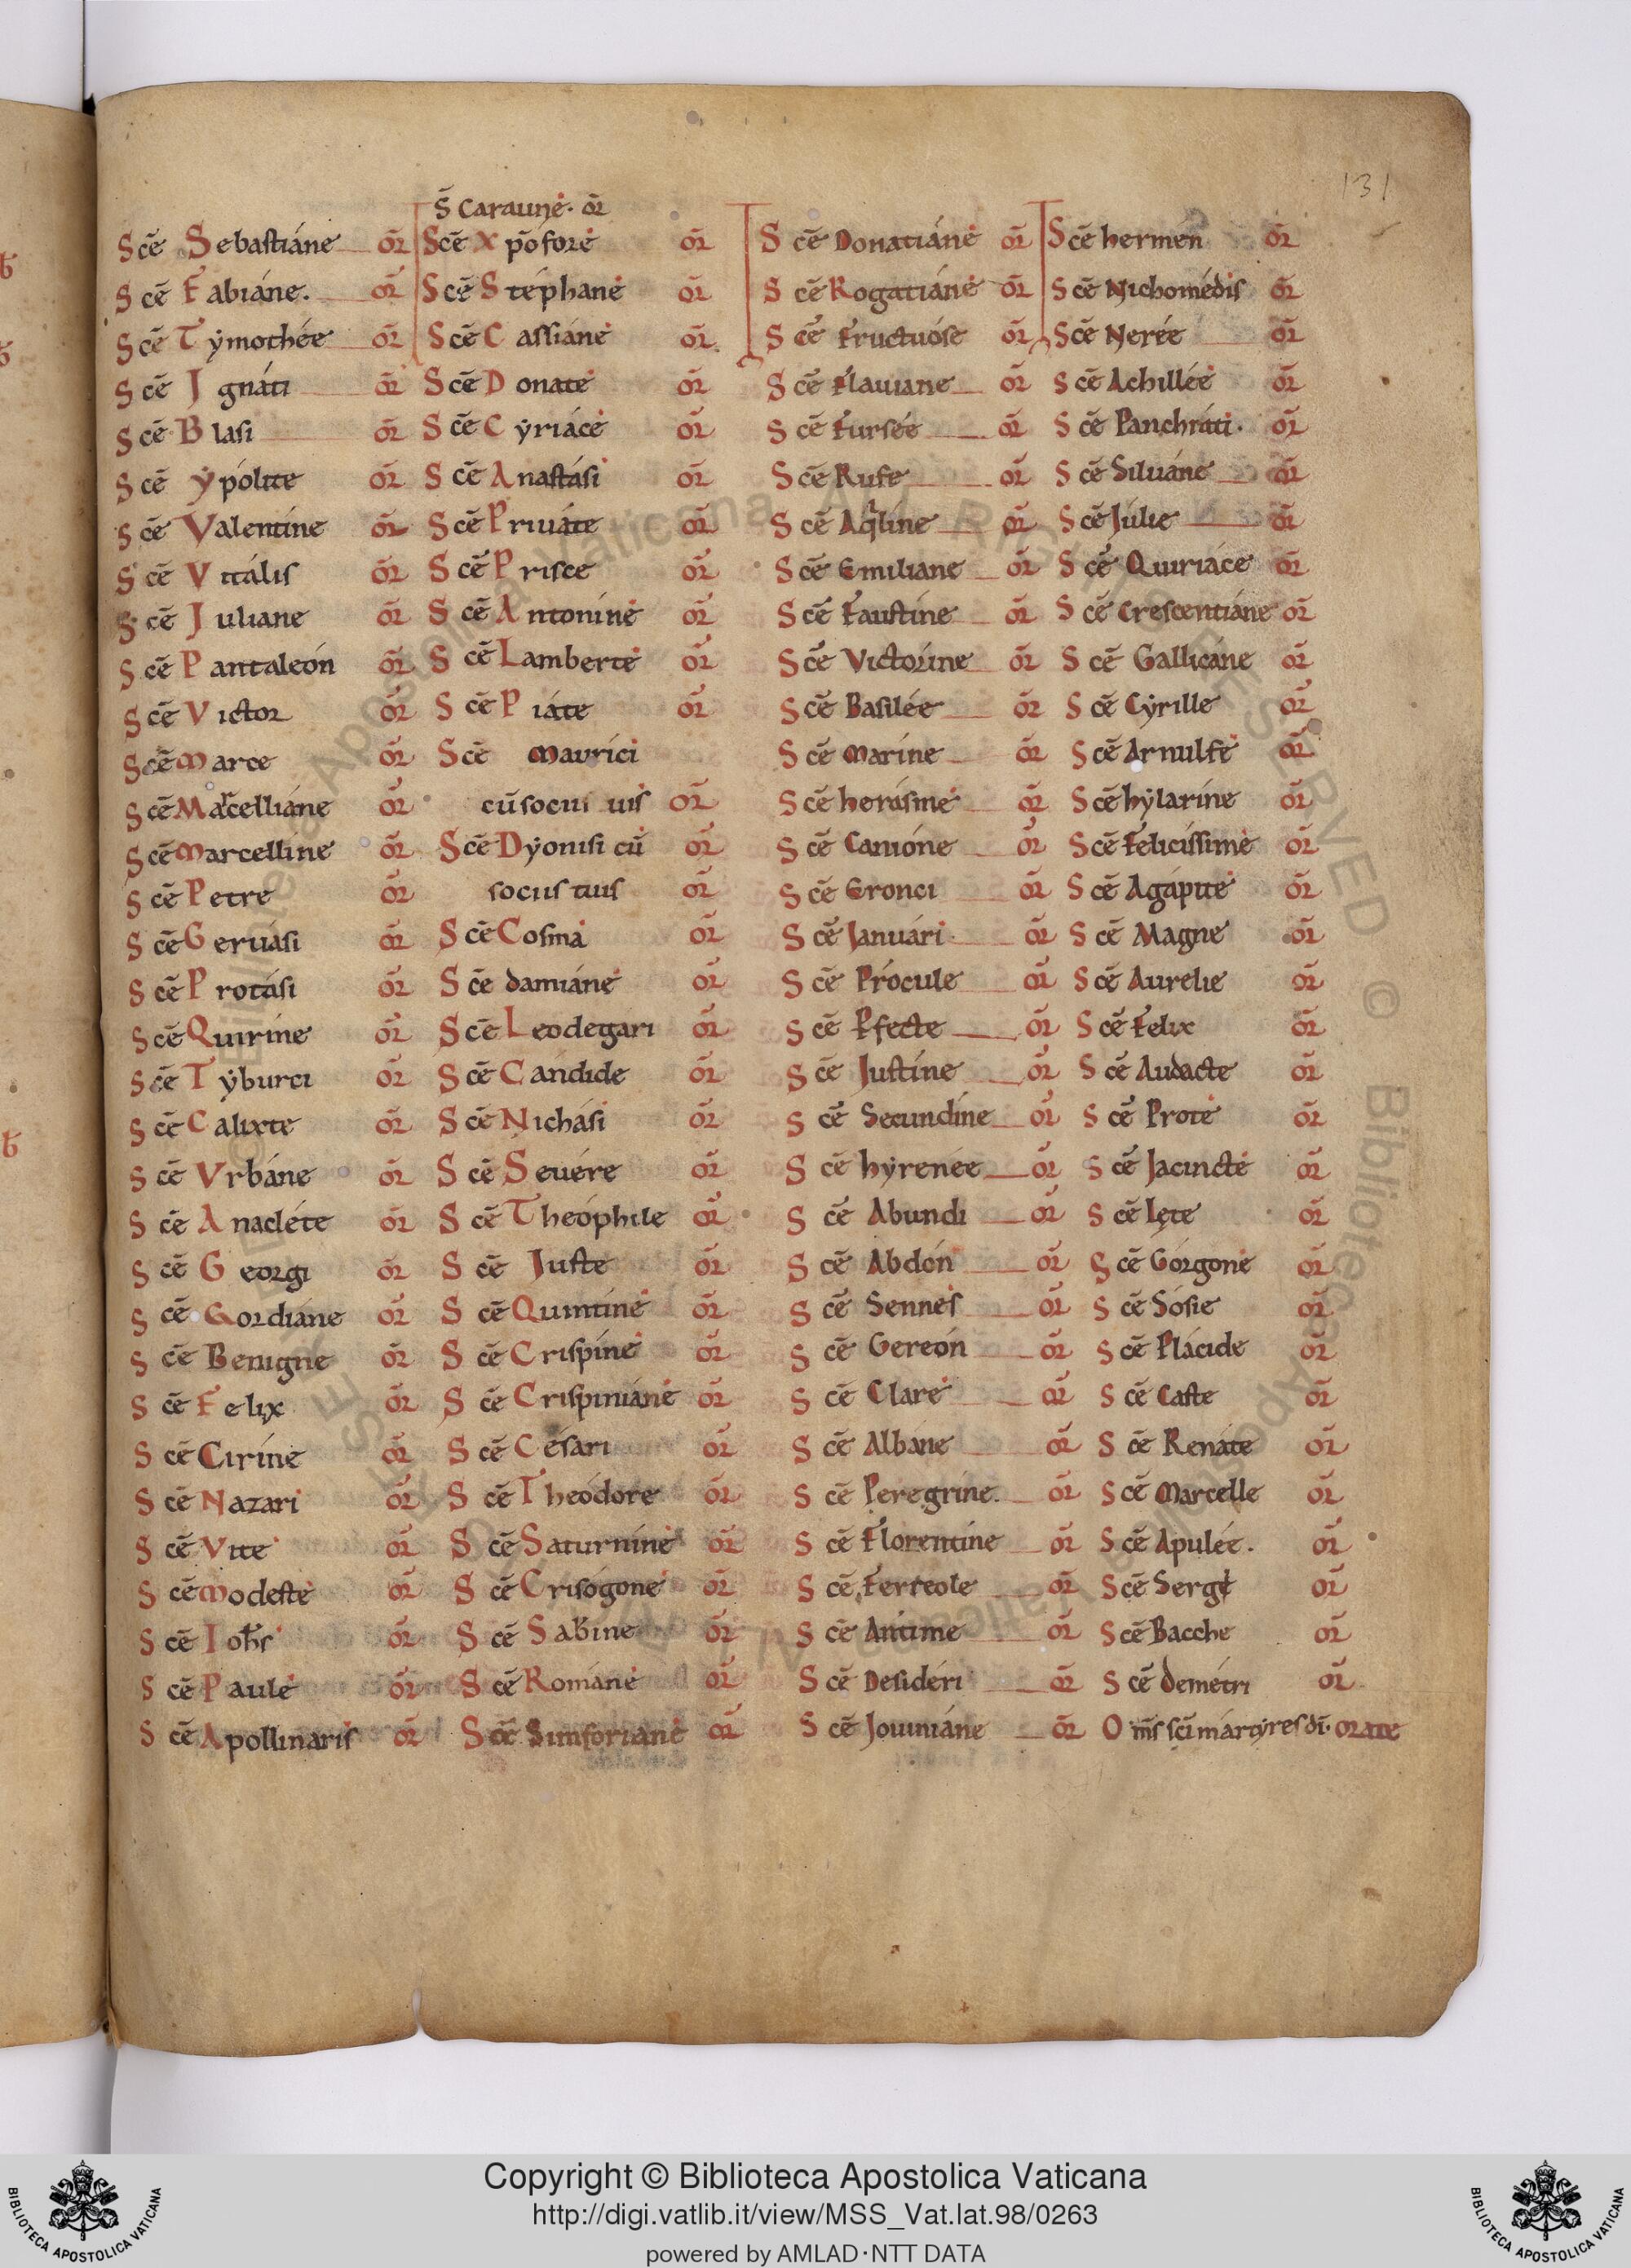 131
S̄ Caraune. or̄
Scē Sebastiáne or̄
Scē Fabiáne. or̄
Scē Tẏmothée or̄
Scē Ignáti or̄
Scē Blasi or̄
Scē ẏpólite or̄
Scē Valentíne or̄
Scē Vitális or̄
Scē Juliane or̄
Scē Pantaleón or̄
Scē Victor or̄
Scē Marce or̄
Scē Marcelliáne or̄
Scē Marcellíne or̄
Scē Petre or̄
Scē Geruási or̄
Scē Protási or̄
Scē Quiríne or̄
Scē Tẏburci or̄
Scē Calixte or̄
Scē Vrbáne or̄
Scē Anacléte or̄
Scē Georgi or̄
Scē Gordiáne or̄
Scē Benigne or̄
Scē Felix or̄
Scē Ciríne or̄
Scē Nazari or̄
Scē Vite or̄
Scē Modeste or̄
Scē Ioh̄s or̄
Scē Paule or̄
Scē Apollinaris or̄
Scē Xp̄ófore or̄
Scē Stéphane or̄
Scē Cassiáne or̄
Scē Donate or̄
Scē Cẏriáce or̄
Scē Anastási or̄
Scē Priuáte or̄
Scē Prisce or̄
Scē Antoníne or̄
Scē Lamberte or̄
Scē Piáte or̄
Scē Maurici
cū sociis uis or̄
Scē Dẏonisi cū or̄
sociis tuis or̄
Scē Cosma or̄
Scē damiáne or̄
Scē Leodegari or̄
Scē Cándide or̄
Scē Nichási or̄
Scē Seuére or̄
Scē Theóphile or̄
Scē Juste or̄
Scē Quintíne or̄
Scē Crispíne or̄
Scē Crispiniáne or̄
Scē Césari or̄
Scē Theódore or̄
Scē Saturníne or̄
Scē Crisógone or̄
Scē Sabíne or̄
Scē Románe or̄
Scē Simforiane or̄
Scē Donatiáne or̄
Scē Rogatiáne or̄
Scē Fructuóse or̄
Scē Flauiane or̄
Scē Fursée or̄
Scē Rufe or̄
Scē Aqⁱline or̄
Scē Emiliane or̄
Scē Faustíne or̄
Scē Victoríne or̄
Scē Basilée or̄
Scē Maríne or̄
Scē herásme or̄
Scē Canióne or̄
Scē Eronci or̄
Scē Januári or̄
Scē Prócule or̄
Scē P̄fecte or̄
Scē Justíne or̄
Scē Secundíne or̄
Scē hẏrenée or̄
Scē Abundi or̄
Scē Abdón or̄
Scē Sennes or̄
Scē Gereón or̄
Scē Clare or̄
Scē Albáne or̄
Scē Peregríne. or̄
Scē Florentíne or̄
Scē Ferreole or̄
Scē Antíme or̄
Scē Desidéri or̄
Scē Jouiniáne or̄
Scē hermen or̄
Scē Nichomédis or̄
Scē Nerée or̄
Scē Achillée or̄
Scē Panchráti. or̄
Scē Siluáne or̄
Scē Júlie or̄
Scē Quiriáce or̄
Scē Crescentiáne or̄
Scē Gallicáne or̄
Scē Cẏrille or̄
Scē Arnulfe or̄
Scē hẏlaríne or̄
Scē Felicissime or̄
Scē Agápite or̄
Scē Magne or̄
Scē Aurelie or̄
Scē Felix or̄
Scē Audacte or̄
Scē Prote or̄
Scē Jacincte or̄
Scē Lęte or̄
Scē Górgone or̄
Scē Sósie or̄
Scē Plácide or̄
Scē Caste or̄
Scē Renáte or̄
Scē Marcelle or̄
Scē Apulée. or̄
Scē Serg or̄
Scē Bacche or̄
Scē demétri or̄
Om̄s sc̄i mártẏres dī. orate
Copyright © Biblioteca Apostolica Vaticana
http://digi.vatlib.it/view/MSS_Vat.lat.98/0263
powered by AMLAD·NTT DATA
BIBLIOTECA APOSTOLICA VATICANA
BIBLIOTECA APOSTOLICA VATICANA